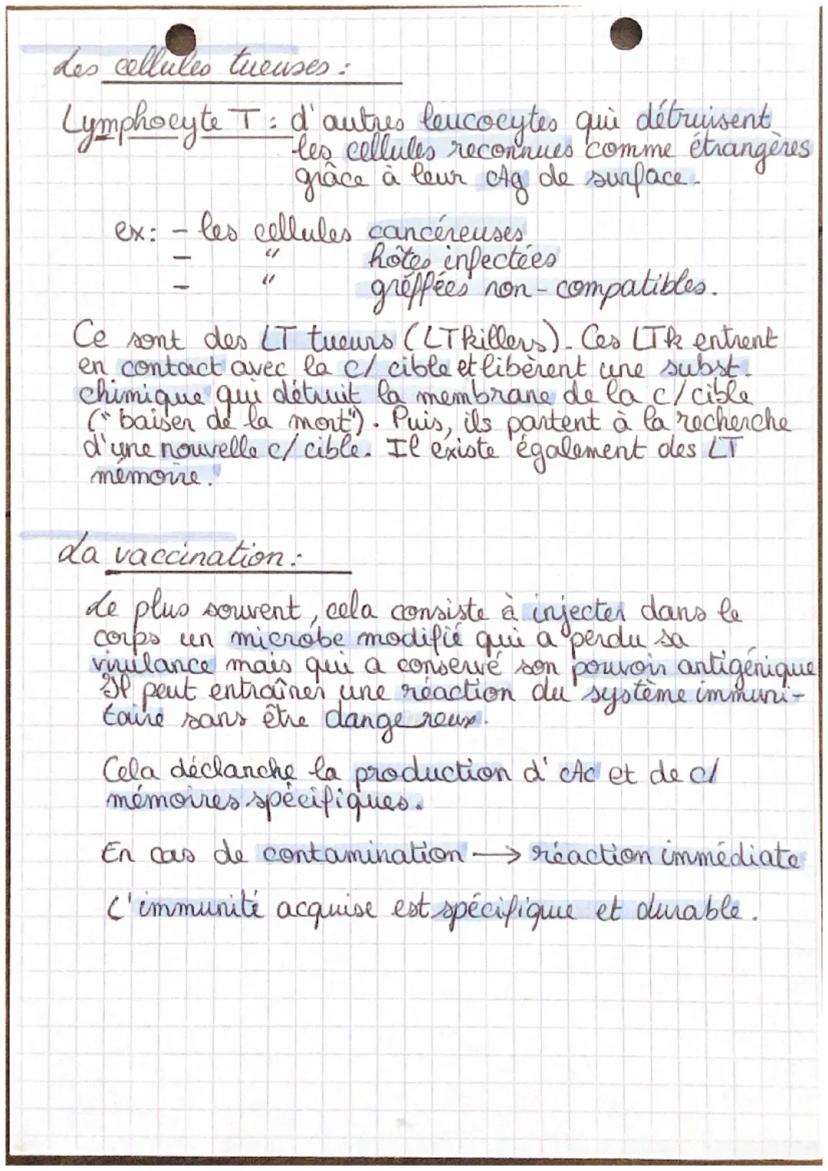 Les cellules tueuses :
Lymphocyte T : d'autres leucocytes qui détruisent
les cellules reconnues comme étrangères
grâce à leur Ag de surface.
ex: - les cellules cancéreuses
- " hôtes infectées
- " gréffées non-compatibles.
Ce sont des LT tueurs (LTkillers). Ces LTk entrent
en contact avec la c/ cible et libèrent une subst.
chimique qui détruit la membrane de la c/cible
("baiser de la mort"). Puis, ils partent à la recherche
d'une nouvelle c/cible. Il existe également des LT
mémoire.
La vaccination :
Le plus souvent, cela consiste à injecter dans le
corps un microbe modifié qui a perdu sa
virulance mais qui a conservé son pouvoir antigénique
Il peut entraîner une réaction du système immuni-
taire sans être dangereux.
Cela déclanche la production d'Ac et de c/
mémoires spécifiques.
En cas de contamination → réaction immédiate
L'immunité acquise est spécifique et durable.